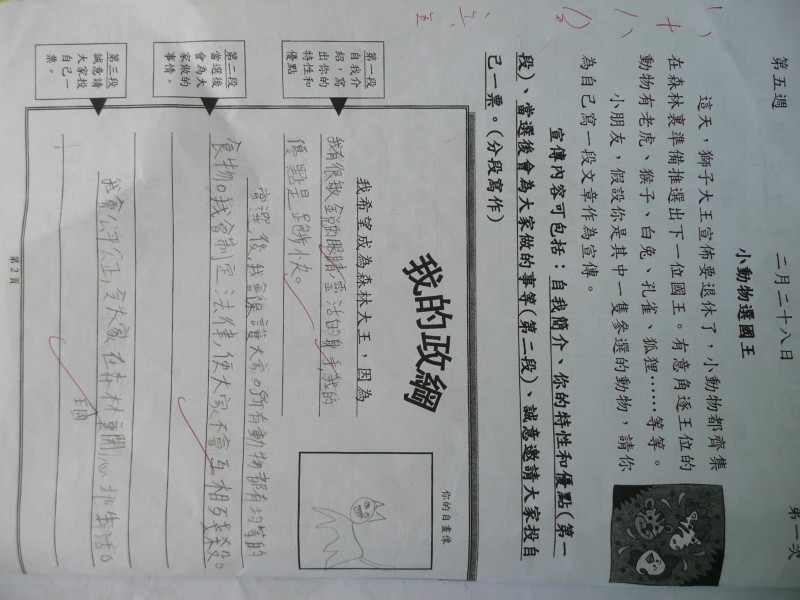 第五週
二月二十八日
第一次
小動物選國王
這天，獅子大王宣佈要退休了，小動物都齊集
在森林裏準備推選出下一位國王。有意角逐王位的
動物有老虎、猴子、白兔、孔雀、狐狸……等等。
小朋友，假設你是其中一隻參選的動物，請你
為自己寫一段文章作為宣傳。
宣傳內容可包括：自我簡介、你的特性和優點(第一
段)、當選後會為大家做的事等(第二段)、誠意邀請大家投自
己一票。(分段寫作)
我的政綱
你的自畫像
第一段
自我介
紹，寫
出你的
特性和
優點
我希望成為森林大王，因為
我有很敏銳的眼睛,靈活的身手,我的
優點是跑步快。
第二段
當選後
會為大
家做的
事情。
當選後,我會保護大家。所有動物都有均等的
食物。我會制定法律,使大家不會互相殘殺。
第三段
誠意請
大家投
自己一
票。
我會公平公正,令大家在森林裏開心地生活。
第2頁